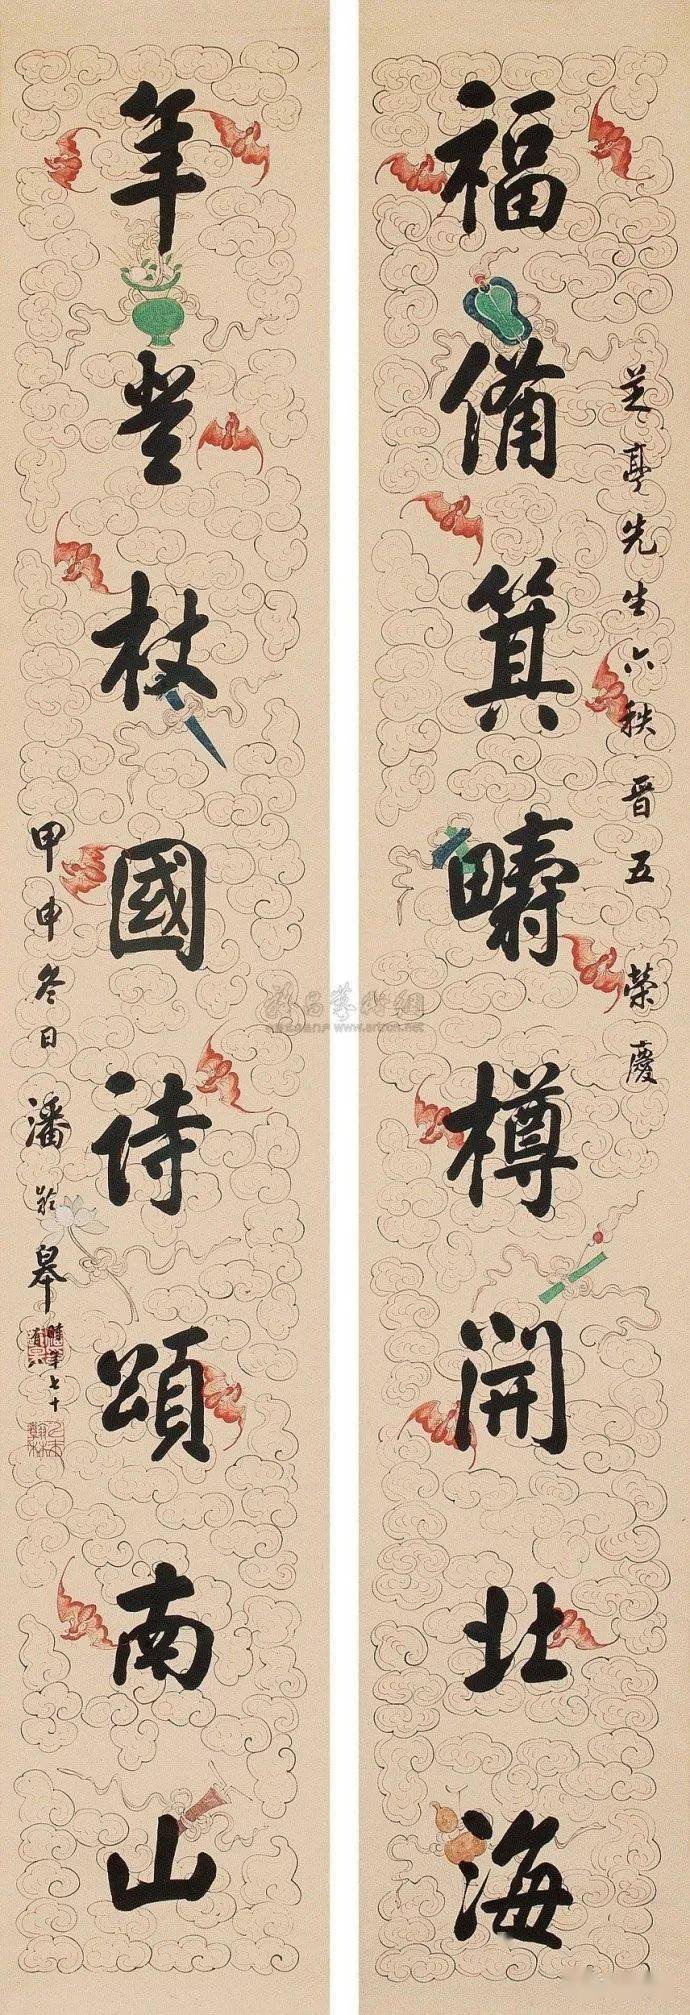 芝亭先生六秩晋五榮慶
福備箕疇樽開北海
年登杖國詩頌南山
甲申冬日潘齡皋
時年七十有八
www.artron.net